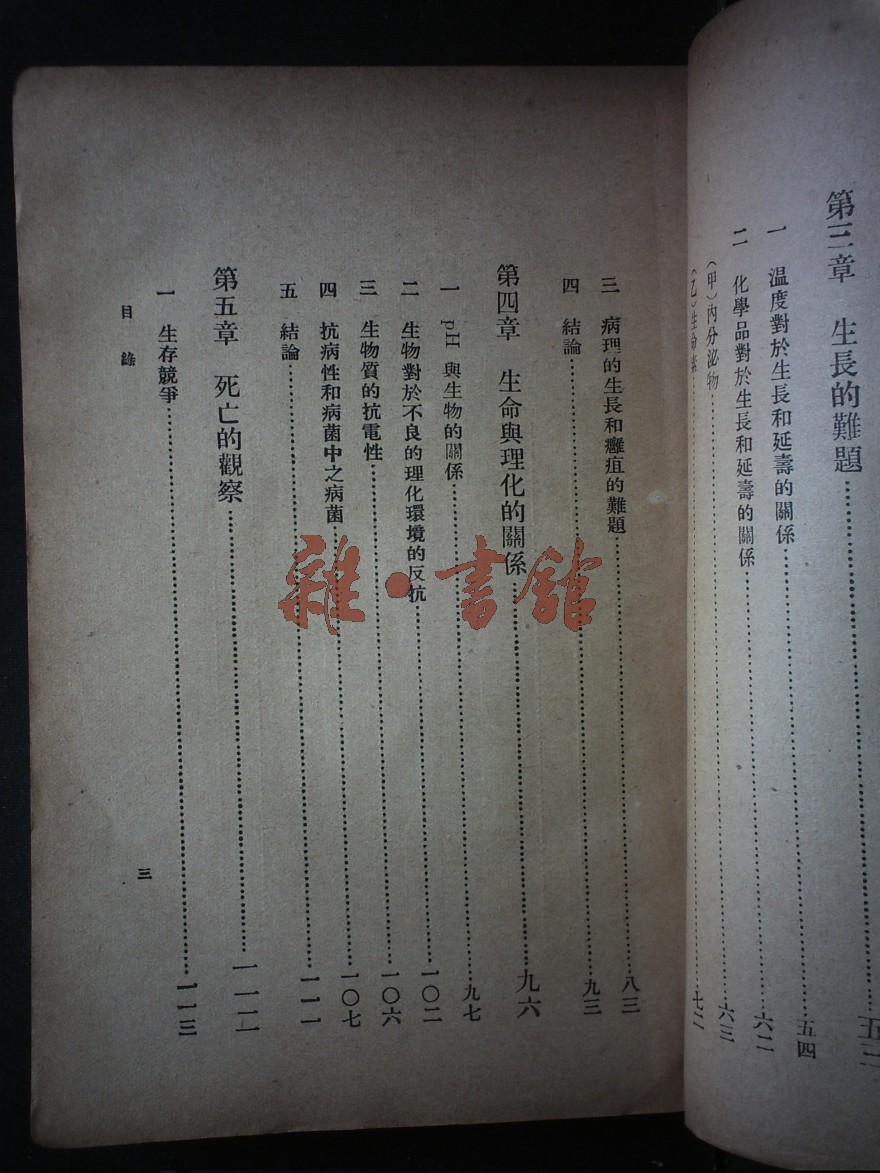 第三章　生長的難題……五二
一　温度對於生長和延壽的關係……五四
二　化學品對於生長和延壽的關係……六二
（甲）內分泌物……六三
（乙）生命素……七二
三　病理的生長和癰疽的難題……八三
四　結論……九三
第四章　生命與理化的關係……九六
一　pH 與生物的關係……九七
二　生物對於不良的理化環境的反抗……一〇二
三　生物質的抗電性……一〇六
四　抗病性和病菌中之病菌……一〇七
五　結論……一一一
第五章　死亡的觀察……一一二
一　生存競爭……一一三
目錄
三
雜·書館